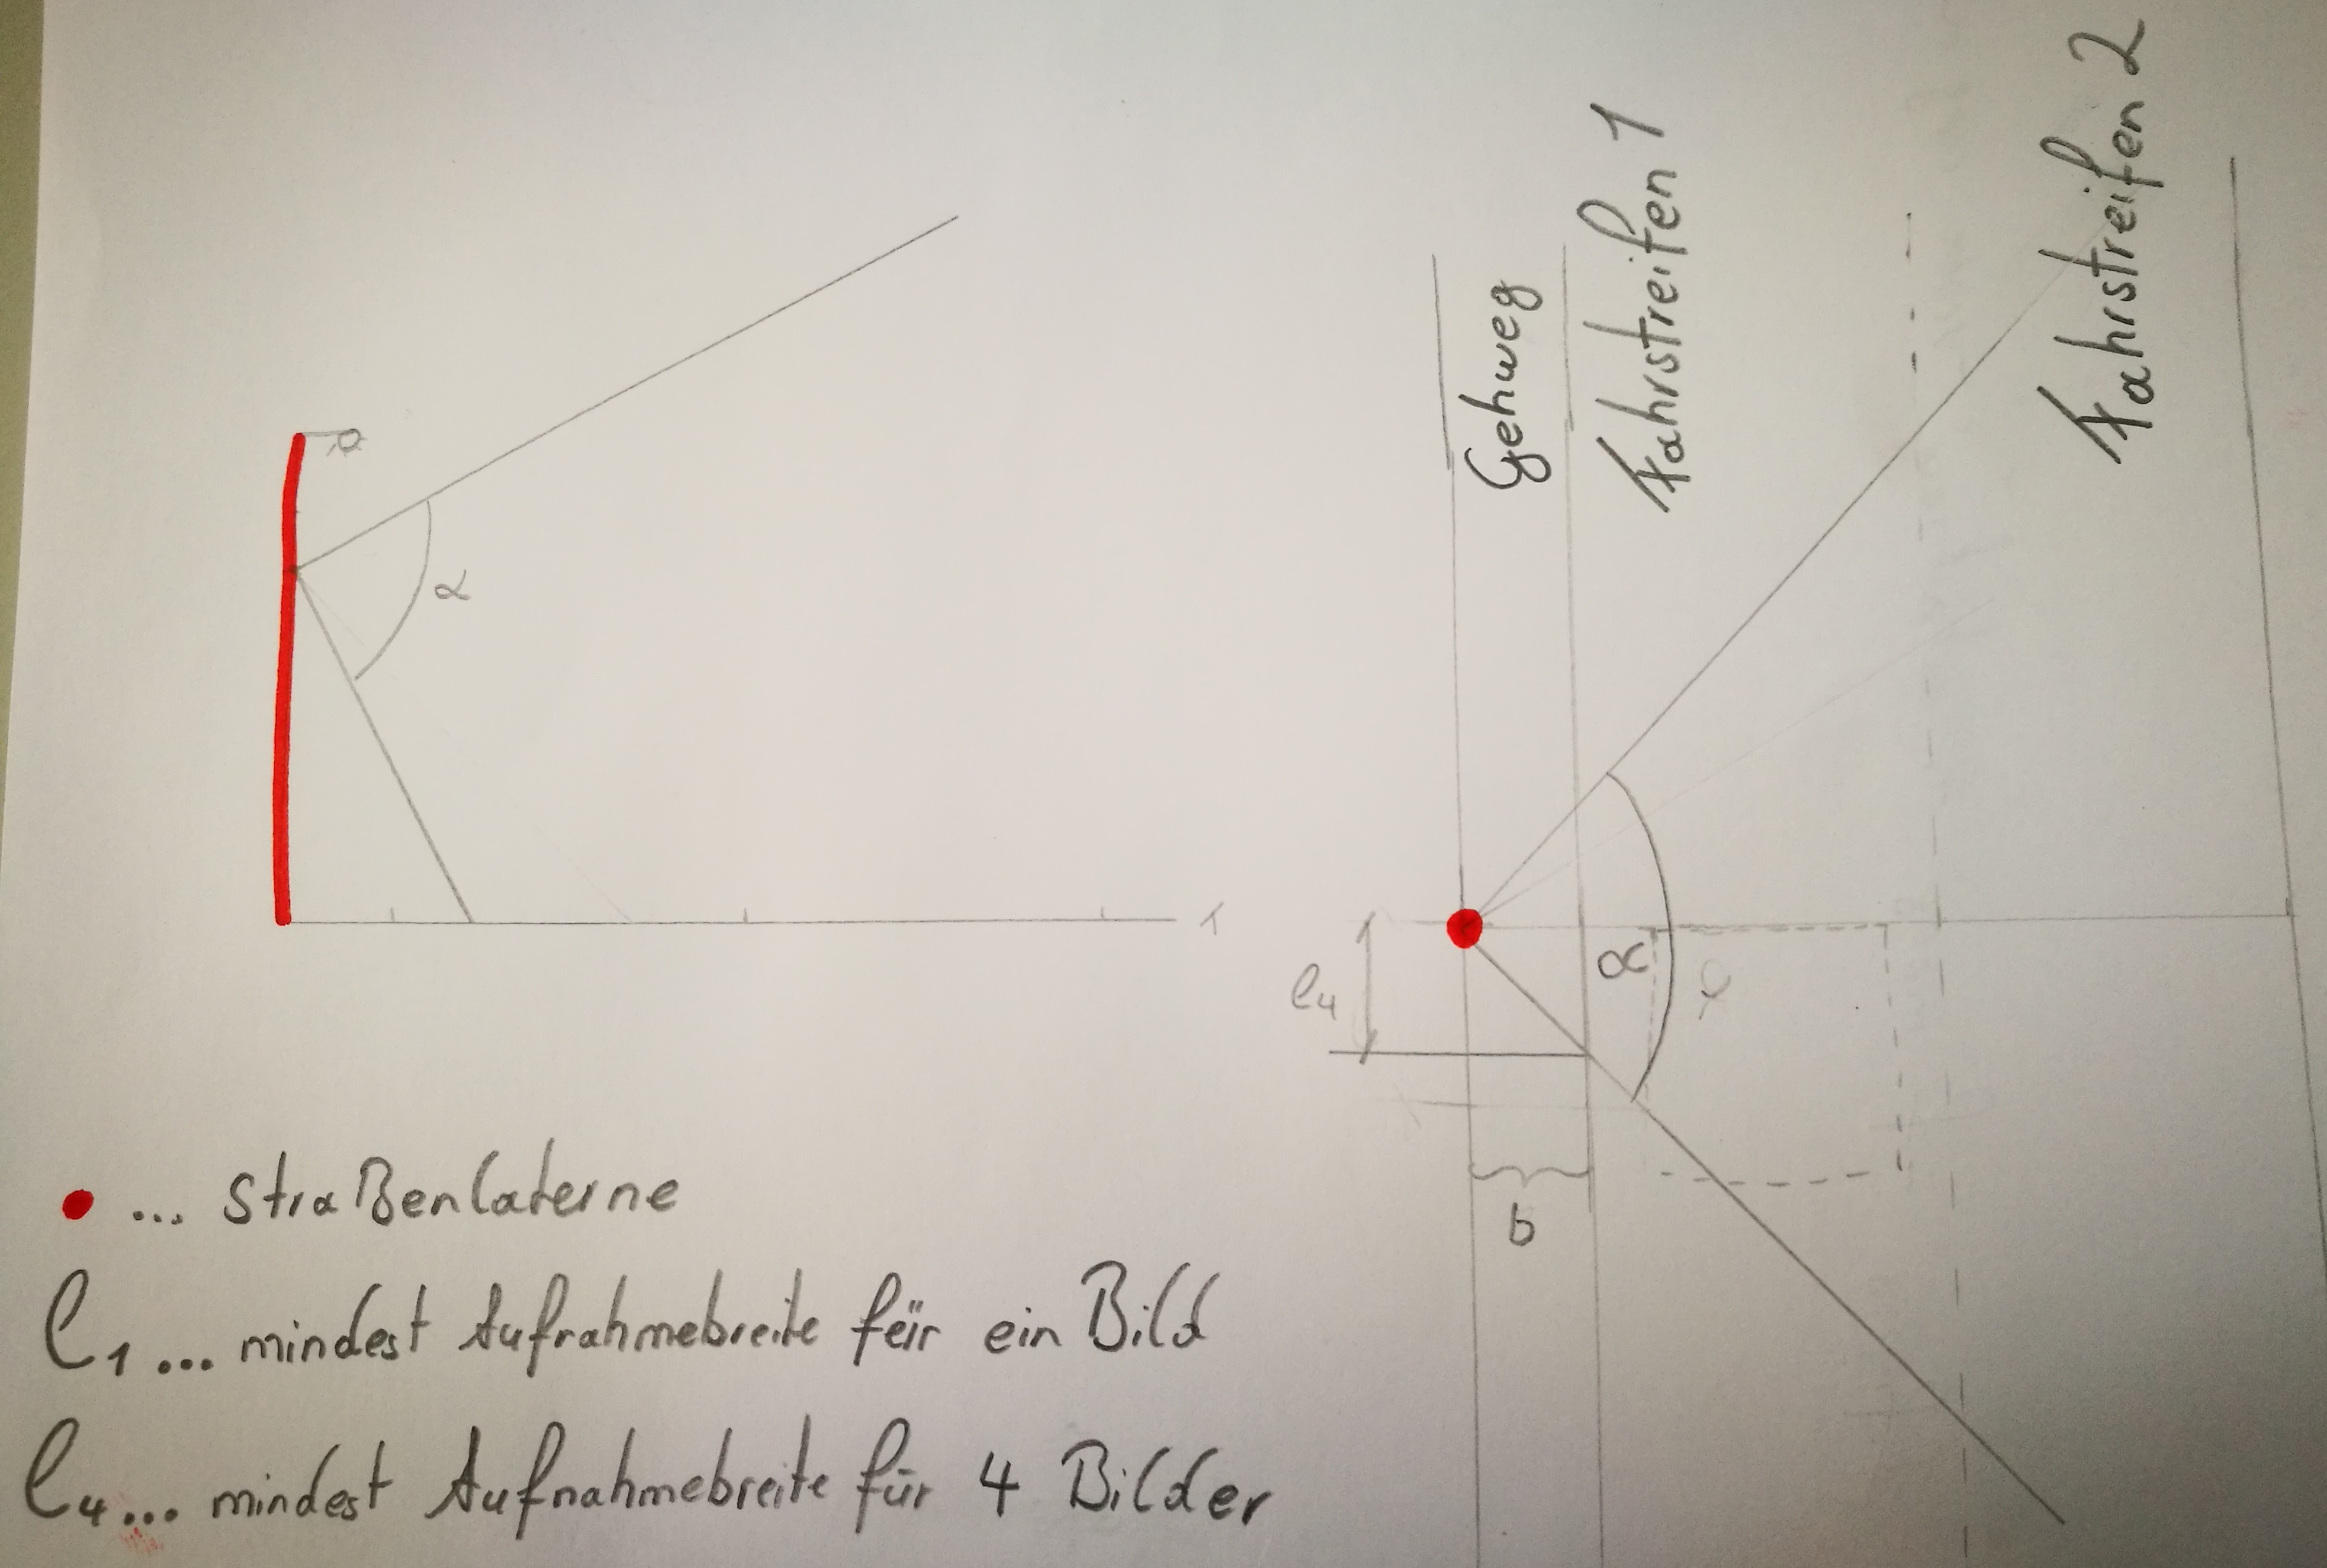 α
Gehweg
Fahrstreifen 1
Fahrstreifen 2
l4
α
b
... Straßenlaterne
l1 ... mindest Aufnahmebreite für ein Bild
l4 ... mindest Aufnahmebreite für 4 Bilder